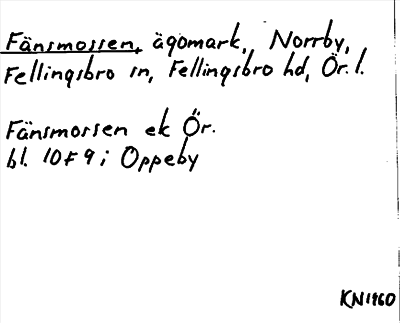 Fänsmossen, ägomark, Norrby,
Fellingsbro sn, Fellingsbro hd, Ör. l.
Fänsmossen ek Ör.
bl. 10F9i Oppeby
KN1960